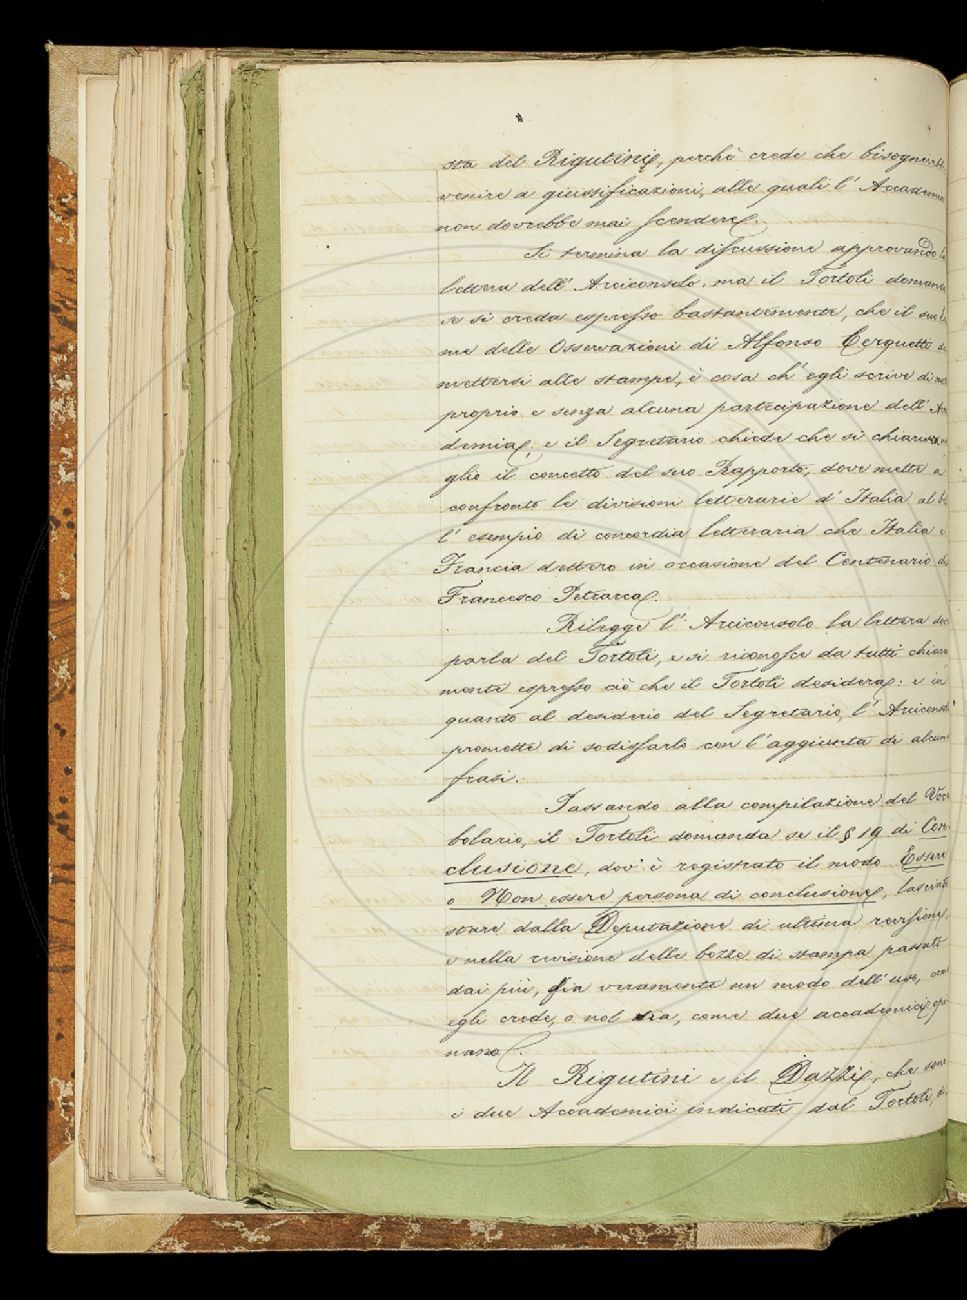 sta del Rigutini, perchè crede che bisognereb-
venire a giustificazioni, alle quali l'Accademia
non dovrebbe mai scendere.
Si termina la discussione approvando la
lettera dell'Arciconsolo. ma il Tortoli domanda
se si creda espresso bastantemente, che il
me delle Osservazioni di Alfonso Cerquetti da
mettersi alle stampe, è cosa ch'egli scrive di
proprio e senza alcuna partecipazione dell'Ac
demia; e il Segretario chiede che si chiarisca
glio il concetto del suo Rapporto, dove mette a
confronto le divisioni letterarie d'Italia al
l'esempio di concordia letteraria che Italia e
Francia dettero in occasione del Centenario di
Francesco Petrarca.
Rilegge l'Arciconsolo la lettera dove
parla del Tortoli, e si riconosce da tutti chiara
mente espresso ciò che il Tortoli desidera: e in
quanto al desiderio del Segretario, l'Arciconsolo
promette di sodisfarlo con l'aggiunta di alcune
frasi.
Passando alla compilazione del Voca
bolario, il Tortoli domanda se il § 19 di Con-
clusione, dov'è registrato il modo Essere
o Non essere persona di conclusione, lasciato
stare dalla Deputazione di ultima revisione,
e nella revisione delle bozze di stampa passato
dai più, sia veramente un modo dell'uso,
egli crede, o nol sia, come due accademici opi
nano.
Il Rigutini e il Dazzi, che sono
i due Accademici indicati dal Tortoli,